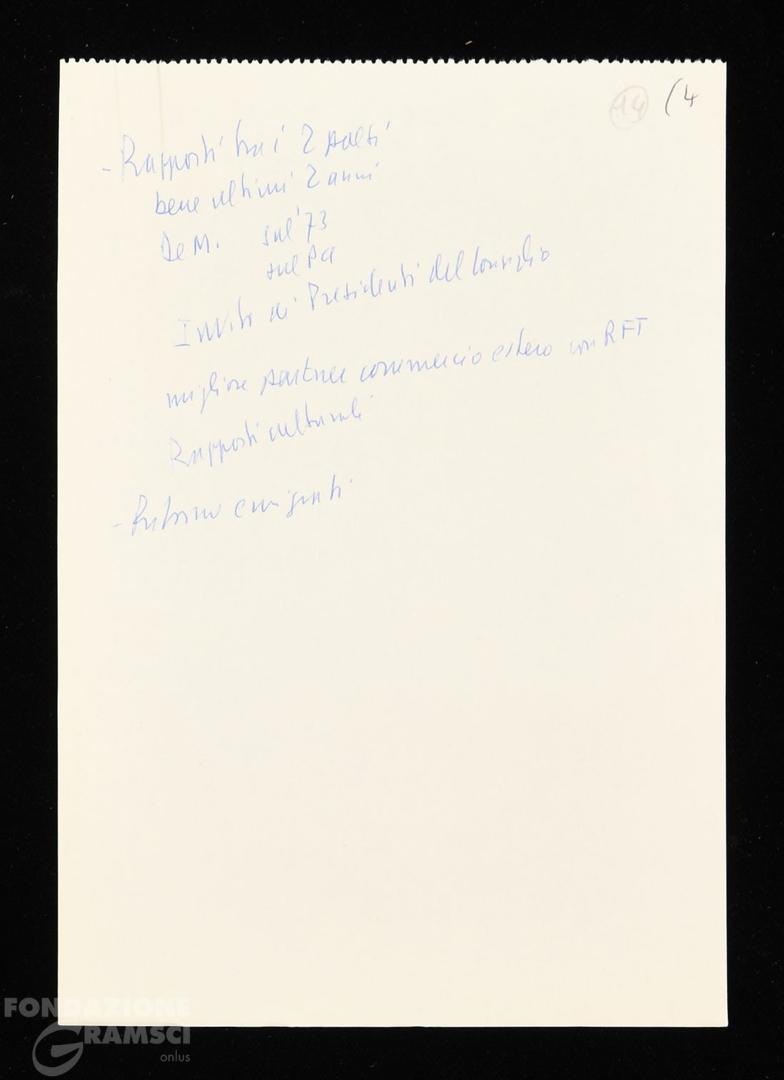 14 (4
- Rapporti tra i 2 paesi
bene ultimi 2 anni
De M. sul '73
sul Pci
Invito ai Presidenti del Consiglio
migliore partner commercio estero con RFT
Rapporti culturali
- Ritorno emigrati
FONDAZIONE
GRAMSCI
onlus